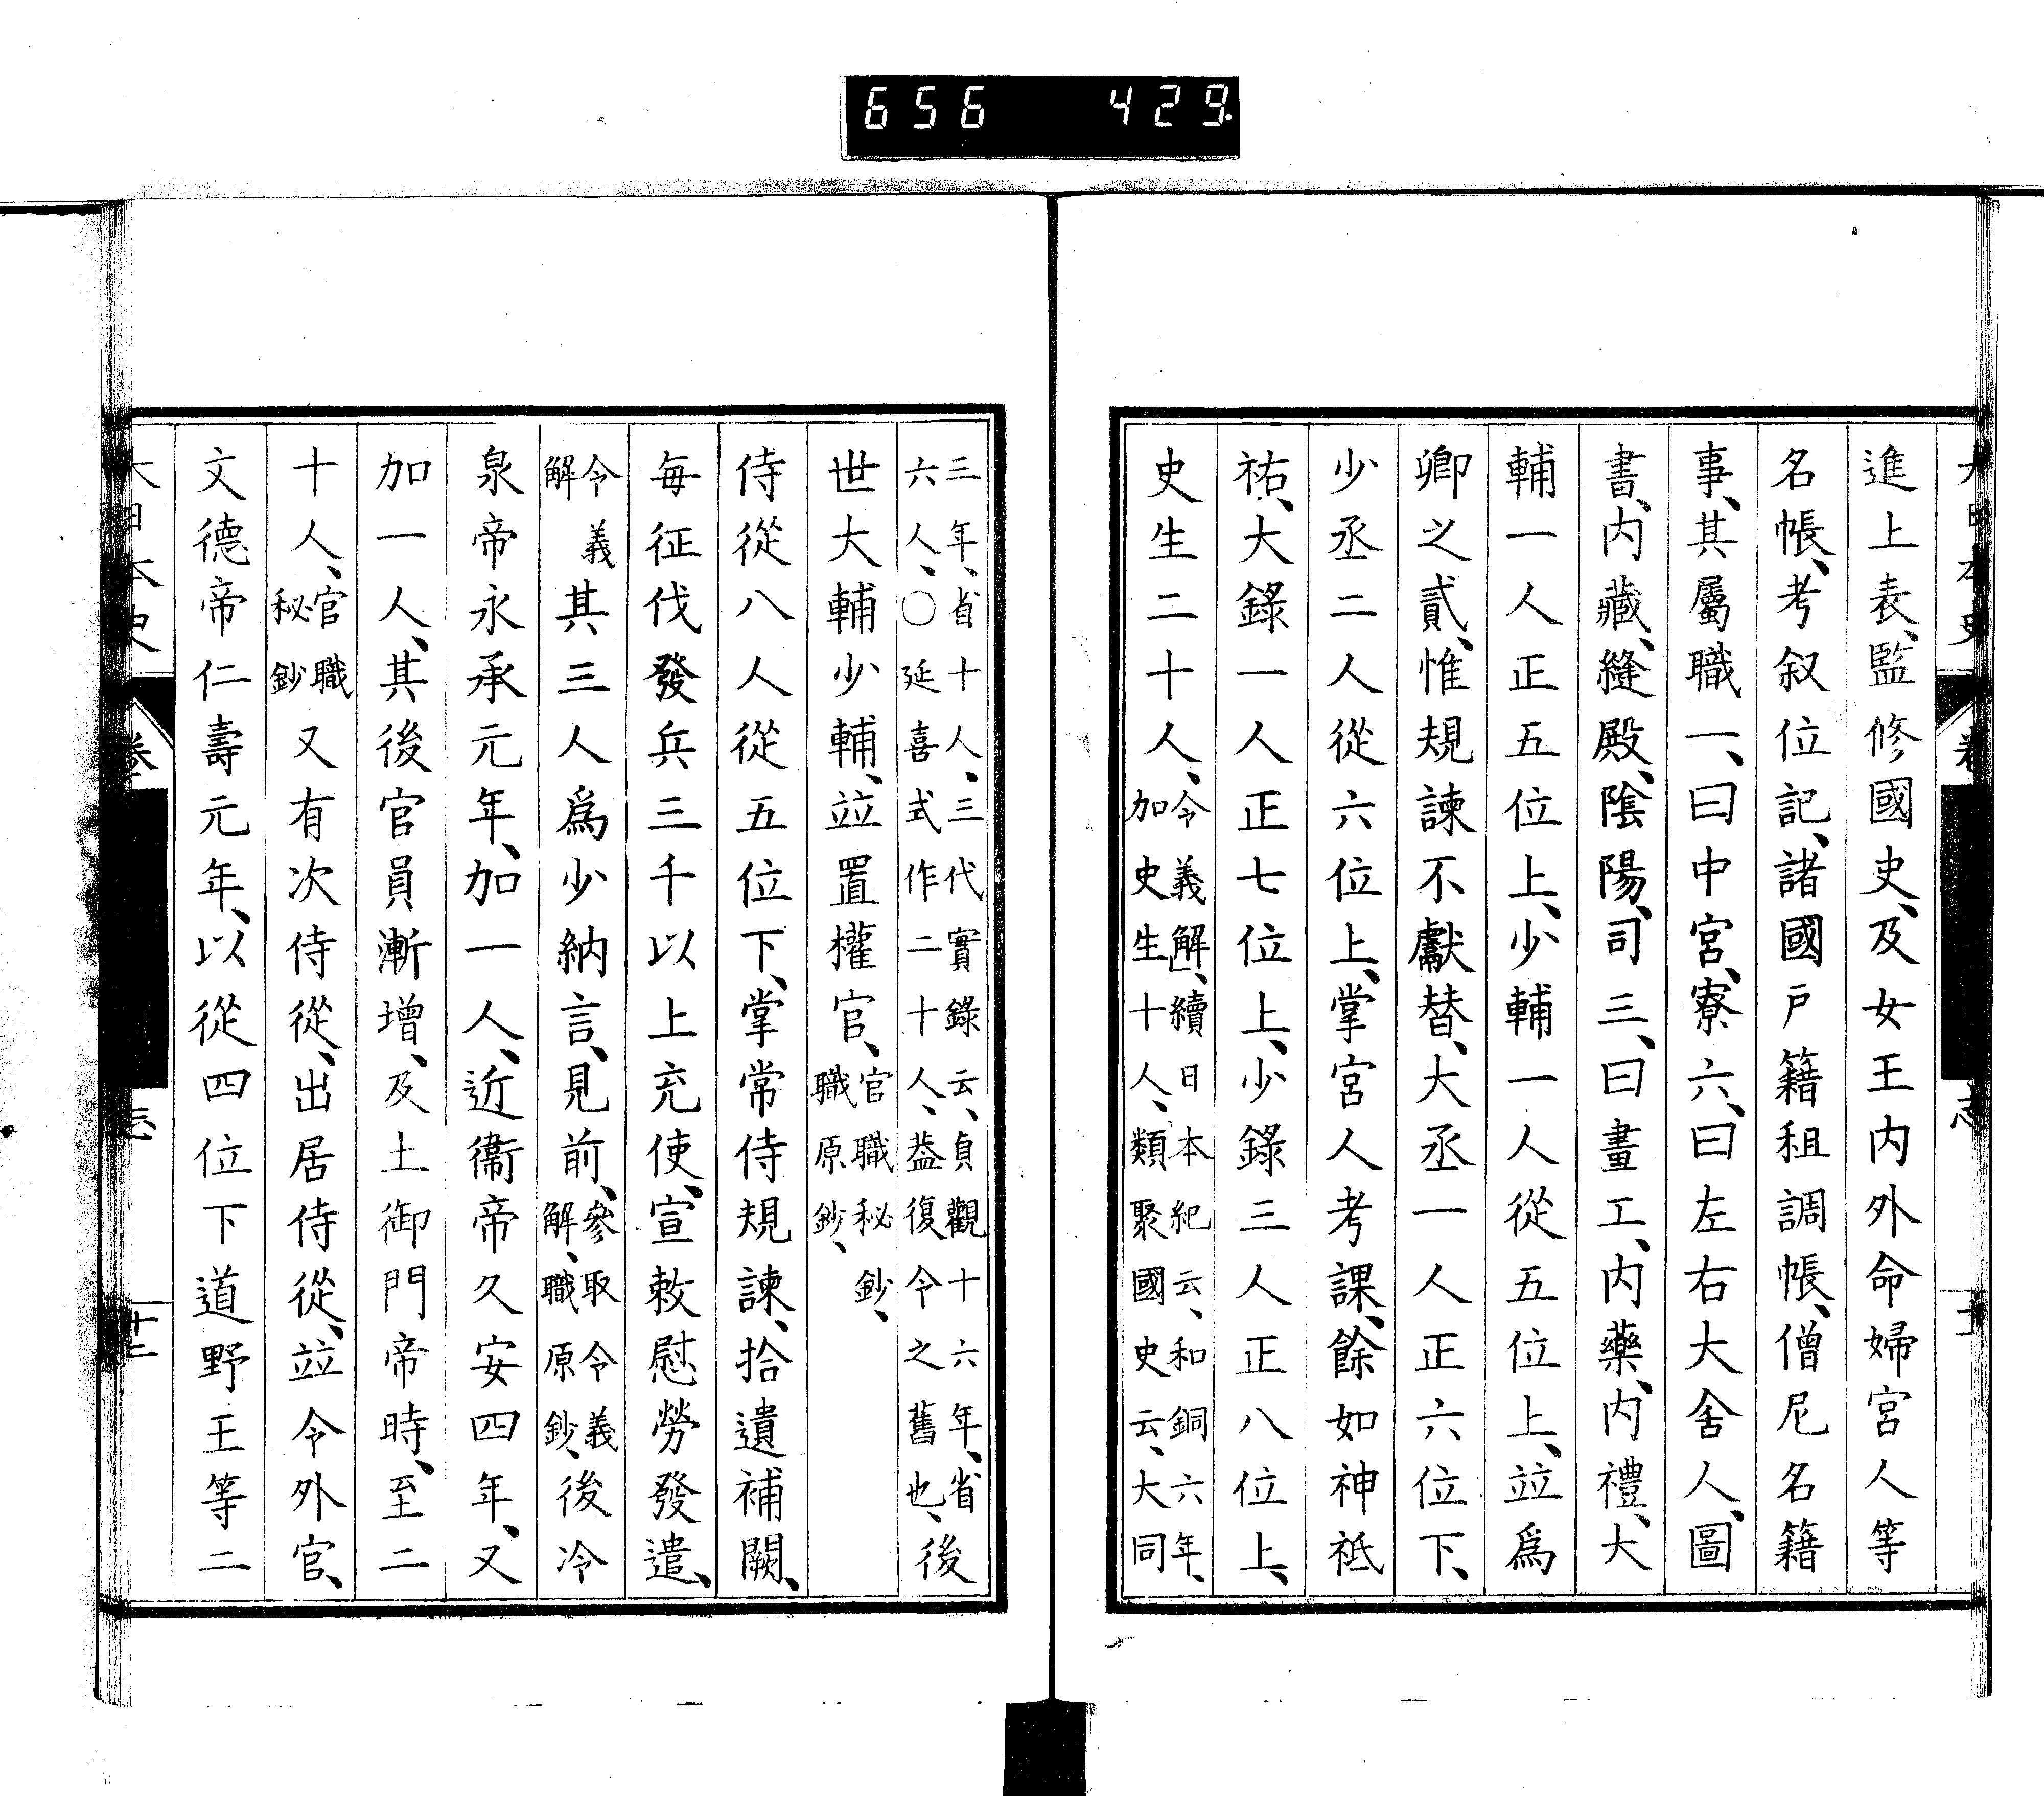 656 429
進上表、監修國史、及女王內外命婦宮人等
名帳、考叙位記、諸國戶籍租調帳、僧尼名籍
事、其屬職一、曰中宮、寮六、曰左右大舍人、圖
書、內藏、縫殿、陰陽、司三、曰畫工、內藥、內禮、大
輔一人正五位上、少輔一人從五位上、竝爲
卿之貳、惟規諫不獻替、大丞一人正六位下、
少丞二人從六位上、掌宮人考課、餘如神祗
祐、大錄一人正七位上、少錄三人正八位上、
史生二十人、令義解、續日本紀云、和銅六年、加史生十人、類聚國史云、大同
三年、省十人、三代實錄云、貞觀十六年、省六人、〇延喜式作二十人、蓋復令之舊也、後
世大輔少輔、竝置權官、官職秘鈔、職原鈔、
侍從八人從五位下、掌常侍規諫、拾遺補闕、
每征伐發兵三千以上充使、宣敕慰勞發遣、
令義解其三人爲少納言、見前、參取令義解、職原鈔、後冷
泉帝永承元年、加一人、近衞帝久安四年、又
加一人、其後官員漸增、及土御門帝時、至二
十人、官職秘鈔又有次侍從、出居侍從、竝令外官、
文德帝仁壽元年、以從四位下道野王等二
大日本史 卷 志 十二